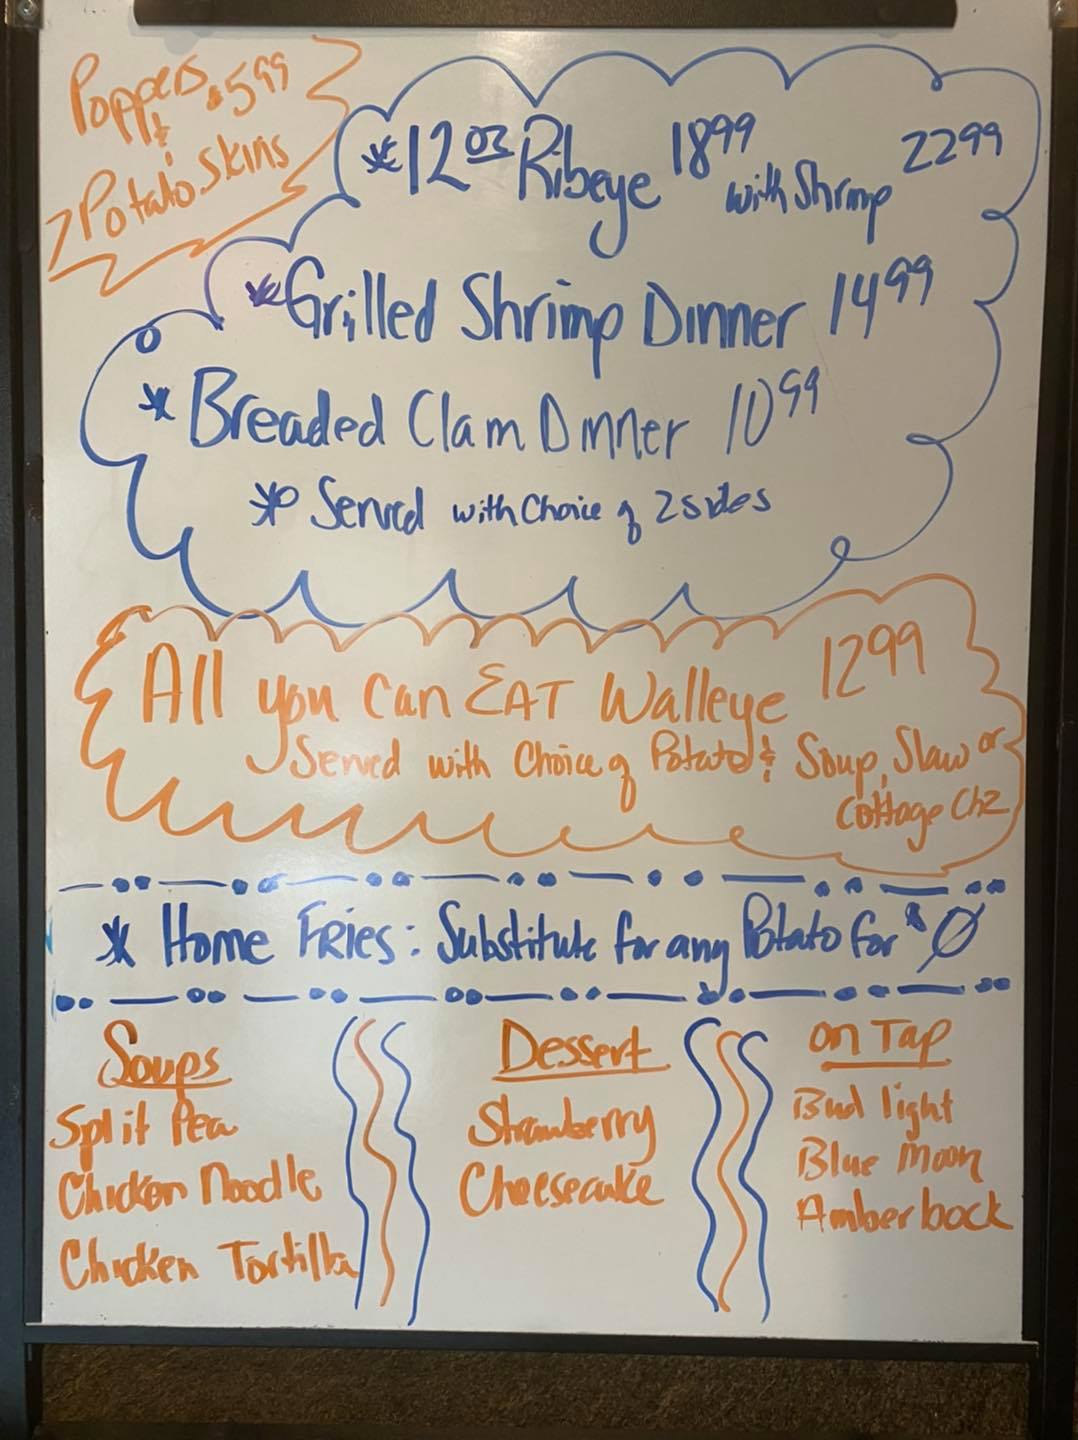 Poppers
& $5.99
Potato Skins
*12 oz Ribeye 18.99 with Shrimp 22.99
*Grilled Shrimp Dinner 14.99
* Breaded Clam Dinner 10.99
* Served with Choice of 2 sides
All you can EAT Walleye 12.99
Served with Choice of Potato & Soup, Slaw or
Cottage Chz
* Home FRIES: Substitute for any Potato for $0
Soups
Split Pea
Chicken Noodle
Chicken Tortilla
Dessert
Strawberry
Cheesecake
on Tap
Bud light
Blue Moon
Amber bock